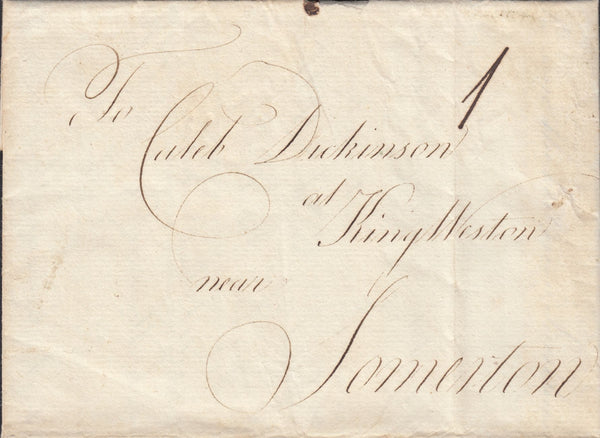 To
1
Caleb Dickinson
at
King Weston
near
Somerton